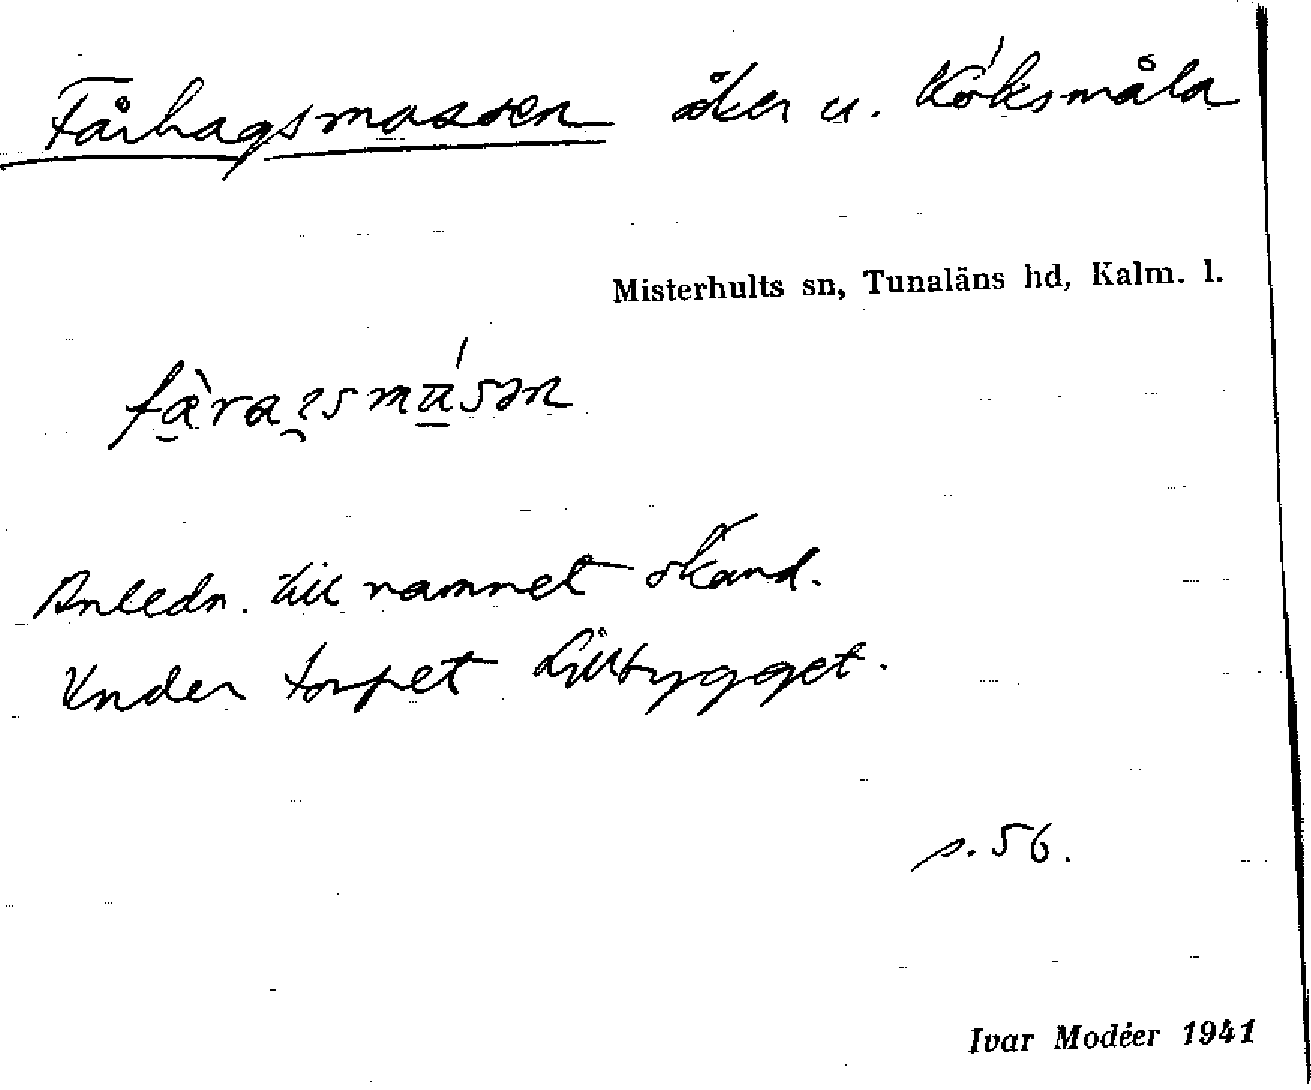 Fårhagsmossen åker u. Köksmåla
Misterhults sn, Tunaläns hd, Kalm. l.
Anledn. till namnet okänd.
Under torpet Lillbygget.
s. 56.
Ivar Modéer 1941